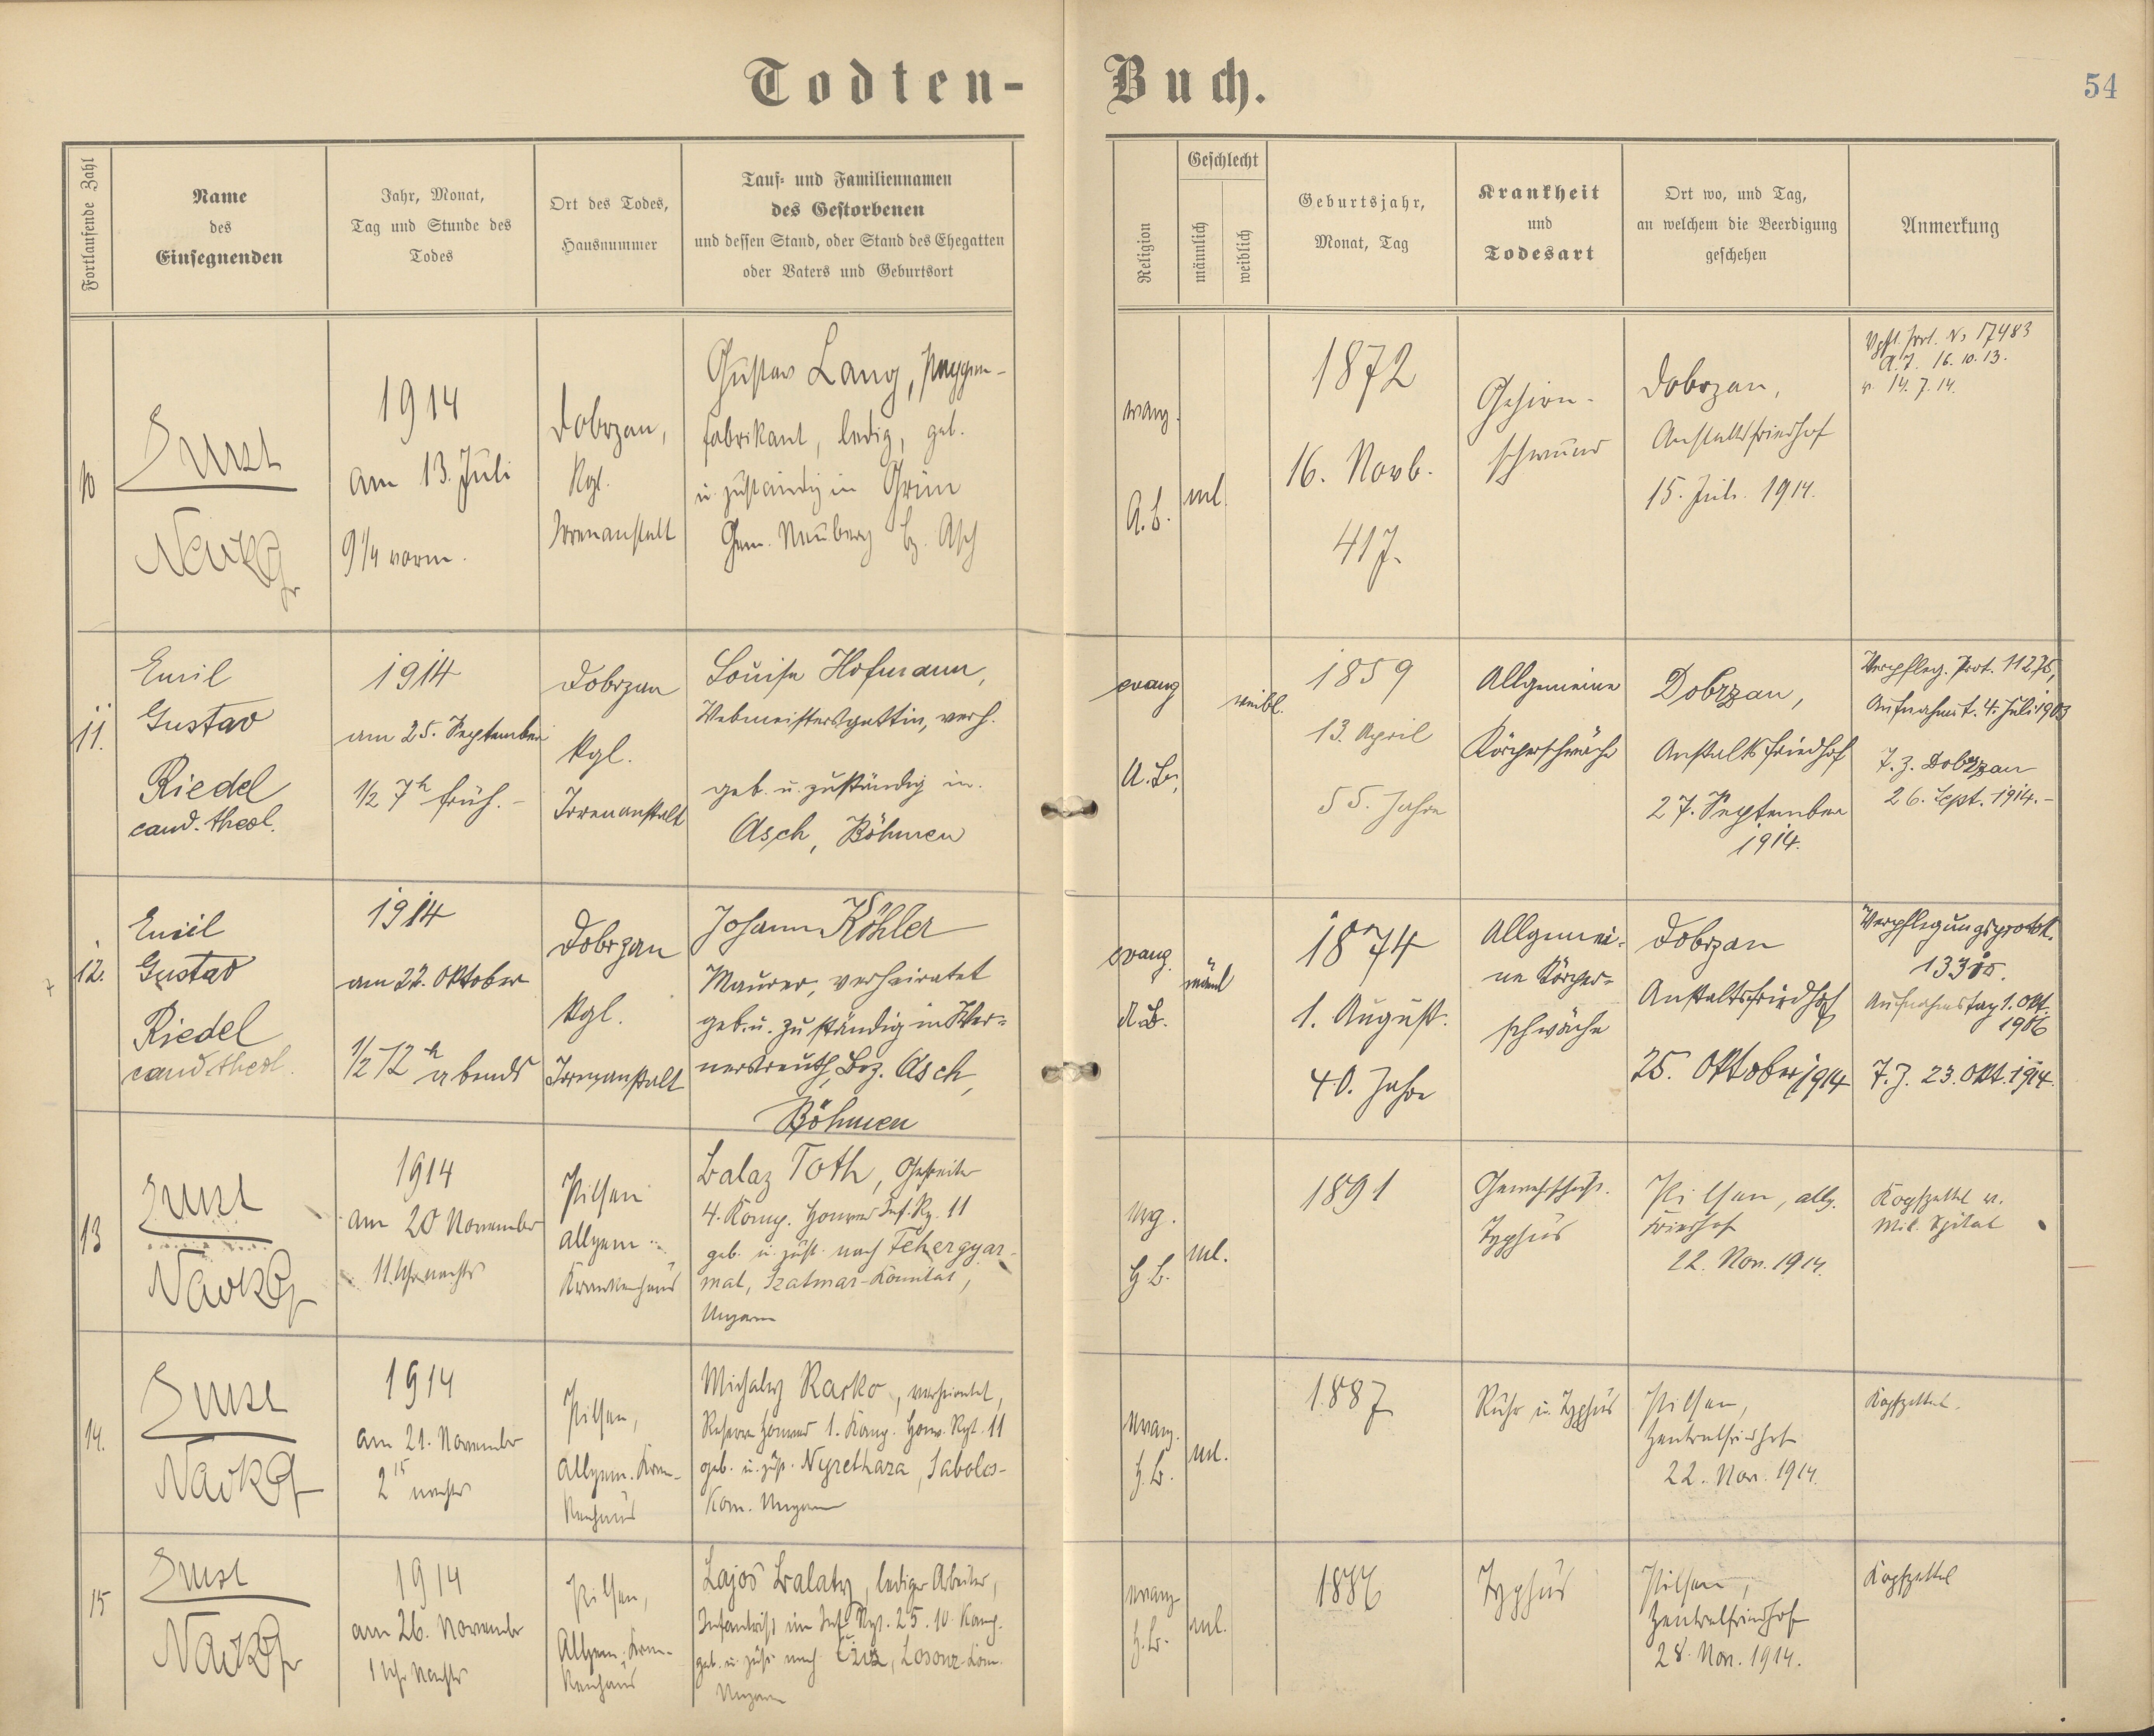 Todten-Buch.
54
Fortlaufende Zahl
Name
des
Einsegnenden
Jahr, Monat,
Tag und Stunde des
Todes
Ort des Todes,
Hausnummer
Tauf- und Familiennamen
des Gestorbenen
und dessen Stand, oder Stand des Ehegatten
oder Vaters und Geburtsort
Religion
Geschlecht
männlich
weiblich
Geburtsjahr,
Monat, Tag
Krankheit
und
Todesart
Ort wo, und Tag,
an welchem die Beerdigung
geschehen
Anmerkung
10
1914
am 13. Juli
9 1/4 vorm.
Dobrzan,
Kgl.
Irrenanstalt
Gustav Lang,
fabrikant, ledig, geb.
u. zuständig in Grün
Gem. Neuberg Bz. Asch
evang.
A.B.
ml.
1872
16. Novb.
41 J.
Gehirn-
schwund
Dobrzan,
Anstaltsfriedhof
15. Juli 1914.
Vpfl. Prot. No 17483
A.T. 16.10.13.
v. 14.7.14.
11.
Emil
Gustav
Riedel
cand. theol.
1914
am 25. September
1/2 7h früh.-
Dobrzan
Kgl.
Irrenanstalt
Louise Hofmann,
Webmeistersgattin, verh.
geb. u. zuständig in
Asch, Böhmen
evang
A.B.
weibl.
1859
13. April
55. Jahre
Allgemeine
Körperschwäche
Dobrzan,
Anstaltsfriedhof
27. September
1914.
Verpfleg. Prot. 11275,
Aufnahmst. 4. Juli 1903
T.Z. Dobrzan
26. Sept. 1914.-
12.
Emil
Gustav
Riedel
cand. theol.
1914
am 22. Oktober
1/2 12h abends
Dobrzan
Kgl.
Irrenanstalt
Johann Köhler
Maurer, verheiratet
geb. u. zuständig in Wer-
nersreuth, Bez. Asch,
Böhmen
evang.
A.B.
männl
1874
1. August.
40. Jahre
Allgemei-
ne Körper-
schwäche
Dobrzan
Anstaltsfriedhof
25. Oktober 1914
Verpflegungsprotok.
Aufnahmstag 1. Okt.
1906
T.Z. 23. Okt. 1914.
13
1914
am 20 November
11 Uhr nachts
Pilsen
allgem.
Krankenhaus
Balaz Toth, Gefreiter
4. Komp. Honved Inf. Rg. 11
geb. u. zust. nach Fehergyar-
mat, Szatmar-Komitat,
Ungarn
evg.
H.B.
ml.
1891
Typhus
Pilsen, allg.
Friedhof
22. Nov. 1914.
Kopfzettel v.
Mil. Spital
14.
1914
am 21. November
2 15 nachts
Pilsen,
Allgem. Kran-
kenhaus
Michaly Rasko, verheiratet,
Reserve Honved 1. Komp. Honv. Rgt. 11
geb. u. zust. Nyrethaza, Sabolcs-
Kom. Ungarn
evang.
H.B.
ml.
1887
Ruhr u. Typhus
Pilsen,
Zentralfriedhof
22. Nov. 1914.
Kopfzettel.
15
1914
am 26. November
1 Uhr Nachts
Pilsen,
Allgem. Kran-
kenhaus
Lajos Balaty, lediger Arbeiter,
Infanterist im Inf. Rgt. 25. 10 Komp.
geb. u. zust. nach Losonz-Kom.
Ungarn
evang
H.B.
ml.
Typhus
Pilsen,
Zentralfriedhof
28. Nov. 1914.
Kopfzettel